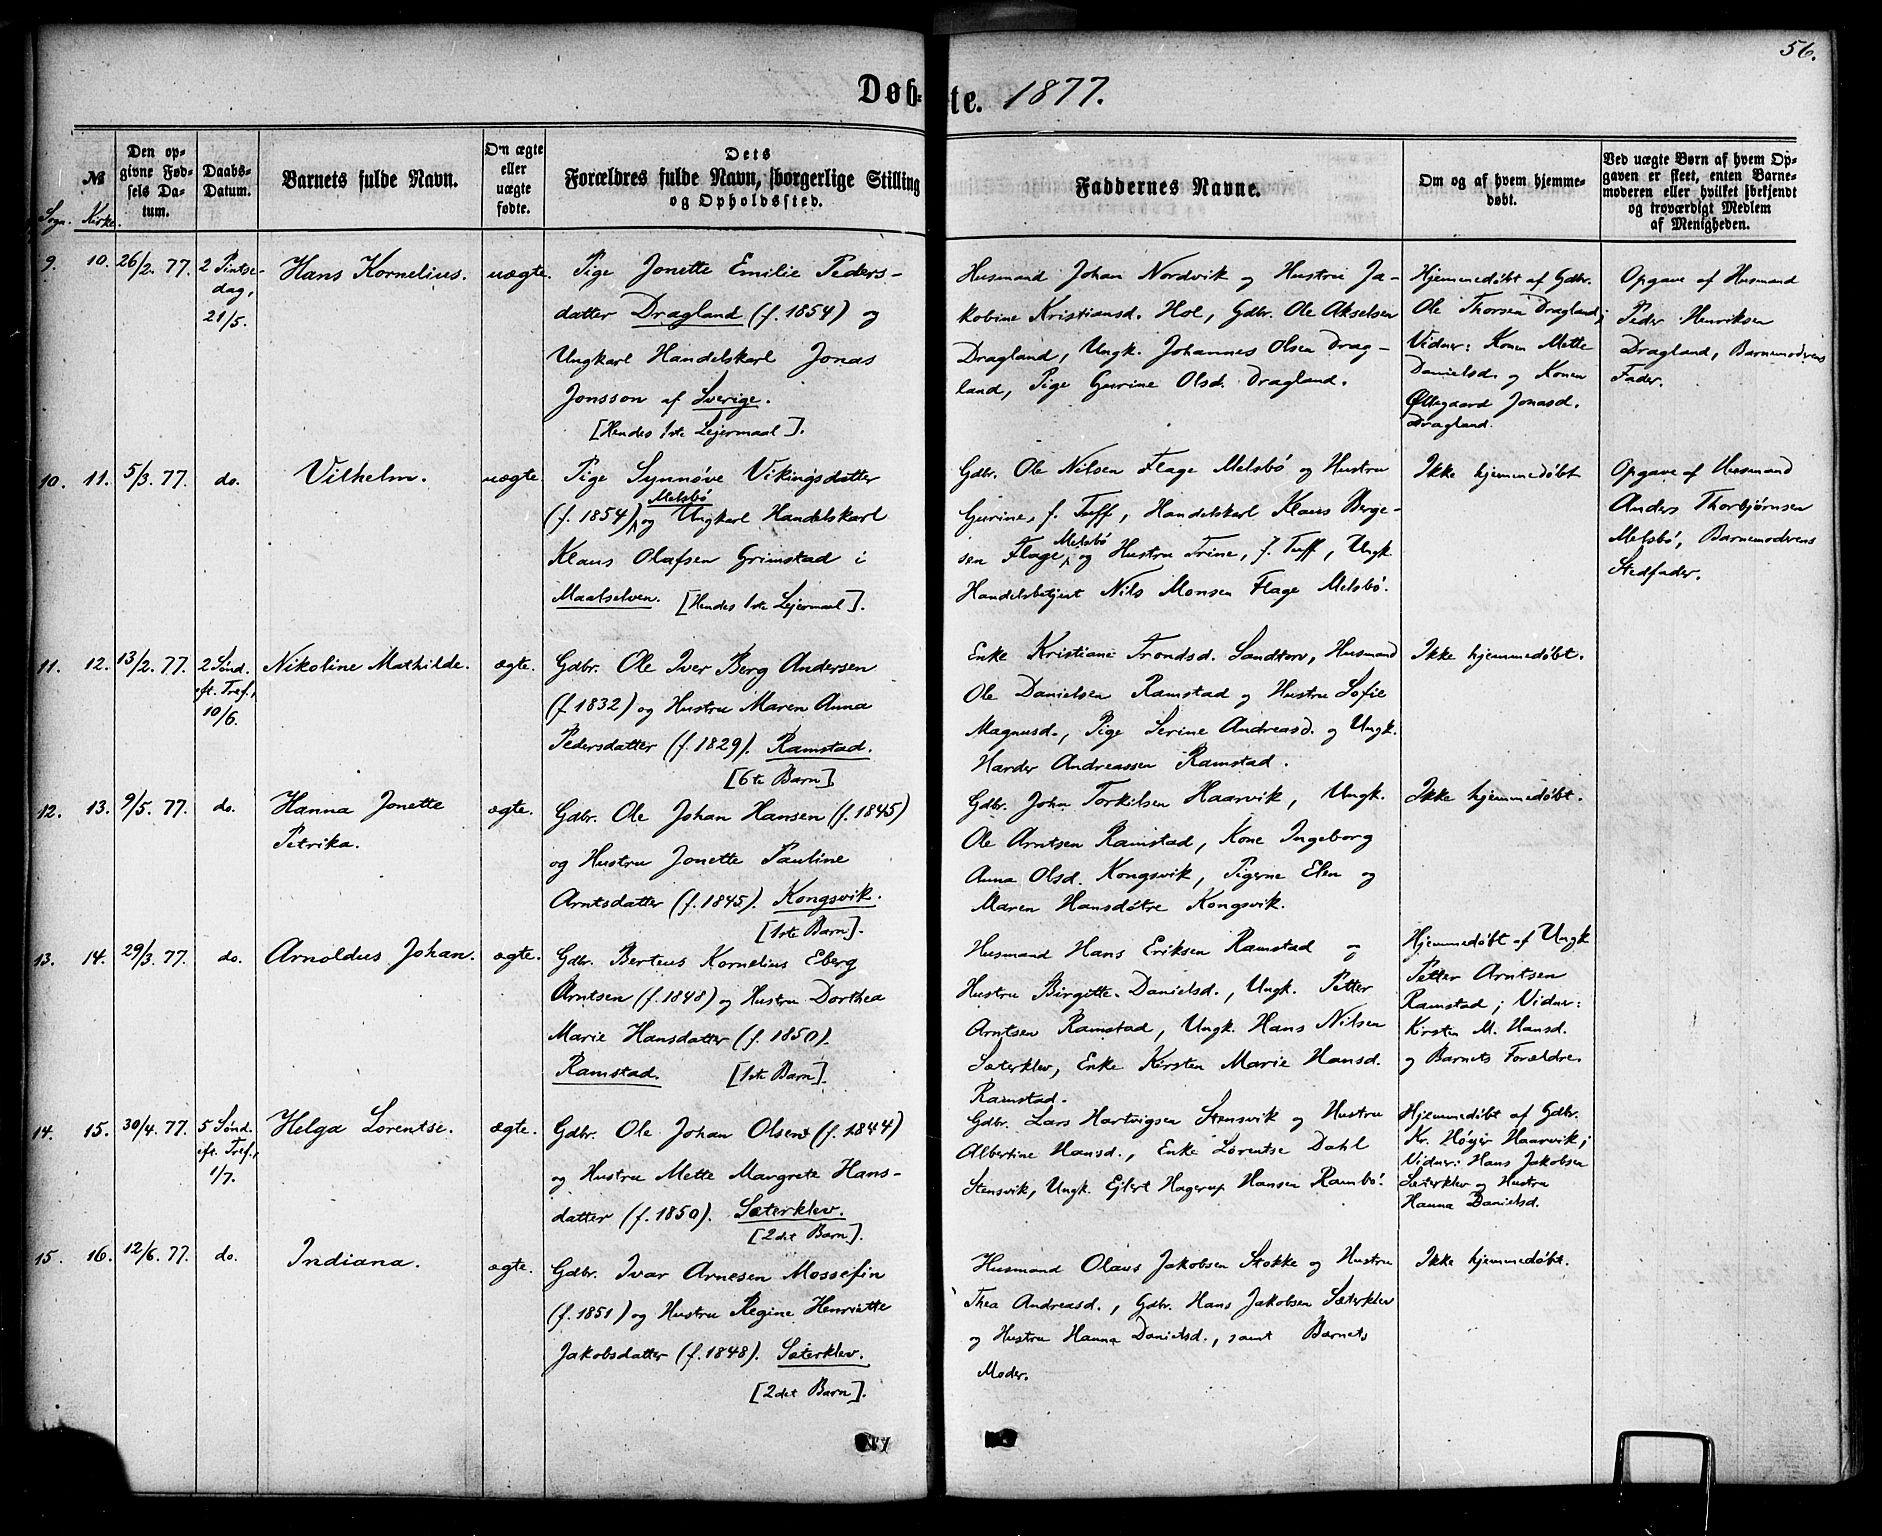 56.
Døbte. 1877.
№
Sogn. Kirke.
Den opgivne Fødsels Datum.
Daabs-Datum.
Barnets fulde Navn.
Om ægte eller uægte fødte.
Dets Forældres fulde Navn, borgerlige Stilling og Opholdssted.
Faddernes Navne.
Om og af hvem hjemmedøbt.
Ved uægte Børn af hvem Opgaven er skeet, enten Barnemoderen eller hvilket bekjendt og troværdigt Medlem af Menigheden.
9. 10. 26/2. 77.
2 Pintse-
dag,
21/5.
Hans Kornelius.
uægte.
Pige Jonette Emilie Peders-
datter Dragland (f. 1854) og
Ungkarl Handelskarl Jonas
Jonsson af Sverige.
[Hendes 1ste Lejermaal].
Husmand Johan Nordvik og Hustru Ja-
kobine Kristiansd. Hol, Gdbr. Ole Akselsen
Dragland, Ungk. Johannes Olsen Drag-
land, Pige Gurine Olsd. Dragland.
Hjemmedøbt af Gdbr.
Ole Thorsen Dragland;
Vidner: Konen Mette
Danielsd. og Konen
Øllegaard Jonasd.
Dragland.
Opgave af Husmand
Peder Henriksen
Dragland, Barnemoderens
Fader.
10. 11. 5/3. 77. do.
Vilhelm.
uægte.
Pige Synnøve Vikingsdatter
Melsbø
(f. 1854) og Ungkarl Handelskarl
Klaus Olafsen Grimstad i
Maalselven. [Hendes 1ste Lejermaal].
Gdbr. Ole Nilsen Flage Melsbø og Hustru
Gurine, f. Tuff, Handelskarl Klaus Berge-
Melsbø
sen Flage, og Hustru Trine, f. Tuff, Ungk.
Handelsbetjent Nils Monsen Flage Melsbø.
Ikke hjemmedøbt
Opgave af Husmand
Anders Thorbjørnsen
Melsbø, Barnemoderens
Stedfader.
11. 12. 13/2. 77.
2 Sønd.
eft. Tref.,
10/6.
Nikoline Mathilde.
ægte.
Gdbr. Ole Iver Berg Andersen
(f. 1832) og Hustru Maren Anna
Pedersdatter (f. 1829). Ramstad.
[6te Barn].
Enke Kristiane Trondsd. Sandtorv, Husmand
Ole Danielsen Ramstad og Hustru Sofie
Magnusd., Pige Serine Andreasd. og Ungk.
Harder Andreassen Ramstad.
Ikke hjemmedøbt.
12. 13. 9/5. 77. do.
Hanna Jonette
Petrika.
ægte.
Gdbr. Ole Johan Hansen (f. 1845)
og Hustru Jonette Pauline
Arntsdatter (f. 1845). Kongsvik.
[1ste Barn].
Gdbr. John Torkilsen Haarvik, Ungk.
Ole Arntsen Ramstad, Kone Ingeborg
Anna Olsd. Kongsvik, Pigerne Elen og
Maren Hansdøtre Kongsvik.
Ikke hjemmedøbt.
13. 14. 29/3. 77. do.
Arnoldus Johan.
ægte.
Gdbr. Berteus Kornelius Eberg
Arntsen (f. 1848) og Hustru Dorthea
Marie Hansdatter (f. 1850).
Ramstad. [1ste Barn].
Husmand Hans Eriksen Ramstad og
Hustru Birgitte Danielsd., Ungk. Petter
Arntsen Ramstad, Ungk. Hans Nilsen
Sæterklev, Enke Kirsten Marie Hansd.
Ramstad.
Hjemmedøbt af Ungk
Petter Arntsen
Ramstad; Vidner:
Kirsten M. Hansd.
og Barnets Forældre.
14. 15. 30/4. 77.
5 Sønd.
eft. Tref.,
1/7.
Helga Lorentse.
ægte.
Gdbr. Ole Johan Olsen (f. 1844)
og Hustru Mette Margrete Hans-
datter (f. 1850). Sæterklev.
[2det Barn].
Gdbr. Lars Hartvigsen Stensvik og Hustru
Albertine Hansd., Enke Lorentse Dahl
Stensvik, Ungk. Ejlert Hagerup Hansen Rambø.
Hjemmedøbt af Gdbr.
Kr. Høyer Haarvik;
Vidner: Hans Jakobsen
Sæterklev og Hustru
Hanna Danielsd.
15. 16. 12/6. 77. do.
Indiana.
ægte.
Gdbr. Ivar Arnesen Mossefin
(f. 1851) og Hustru Regine Henriette
Jakobsdatter (f. 1848). Sæterklev.
[2det Barn].
Husmand Olaus Jakobsen Stokke og Hustru
Thea Andreasd., Gdbr. Hans Jakobsen Sæterklev
og Hustru Hanna Danielsd., samt Barnets
Moder.
Ikke hjemmedøbt.